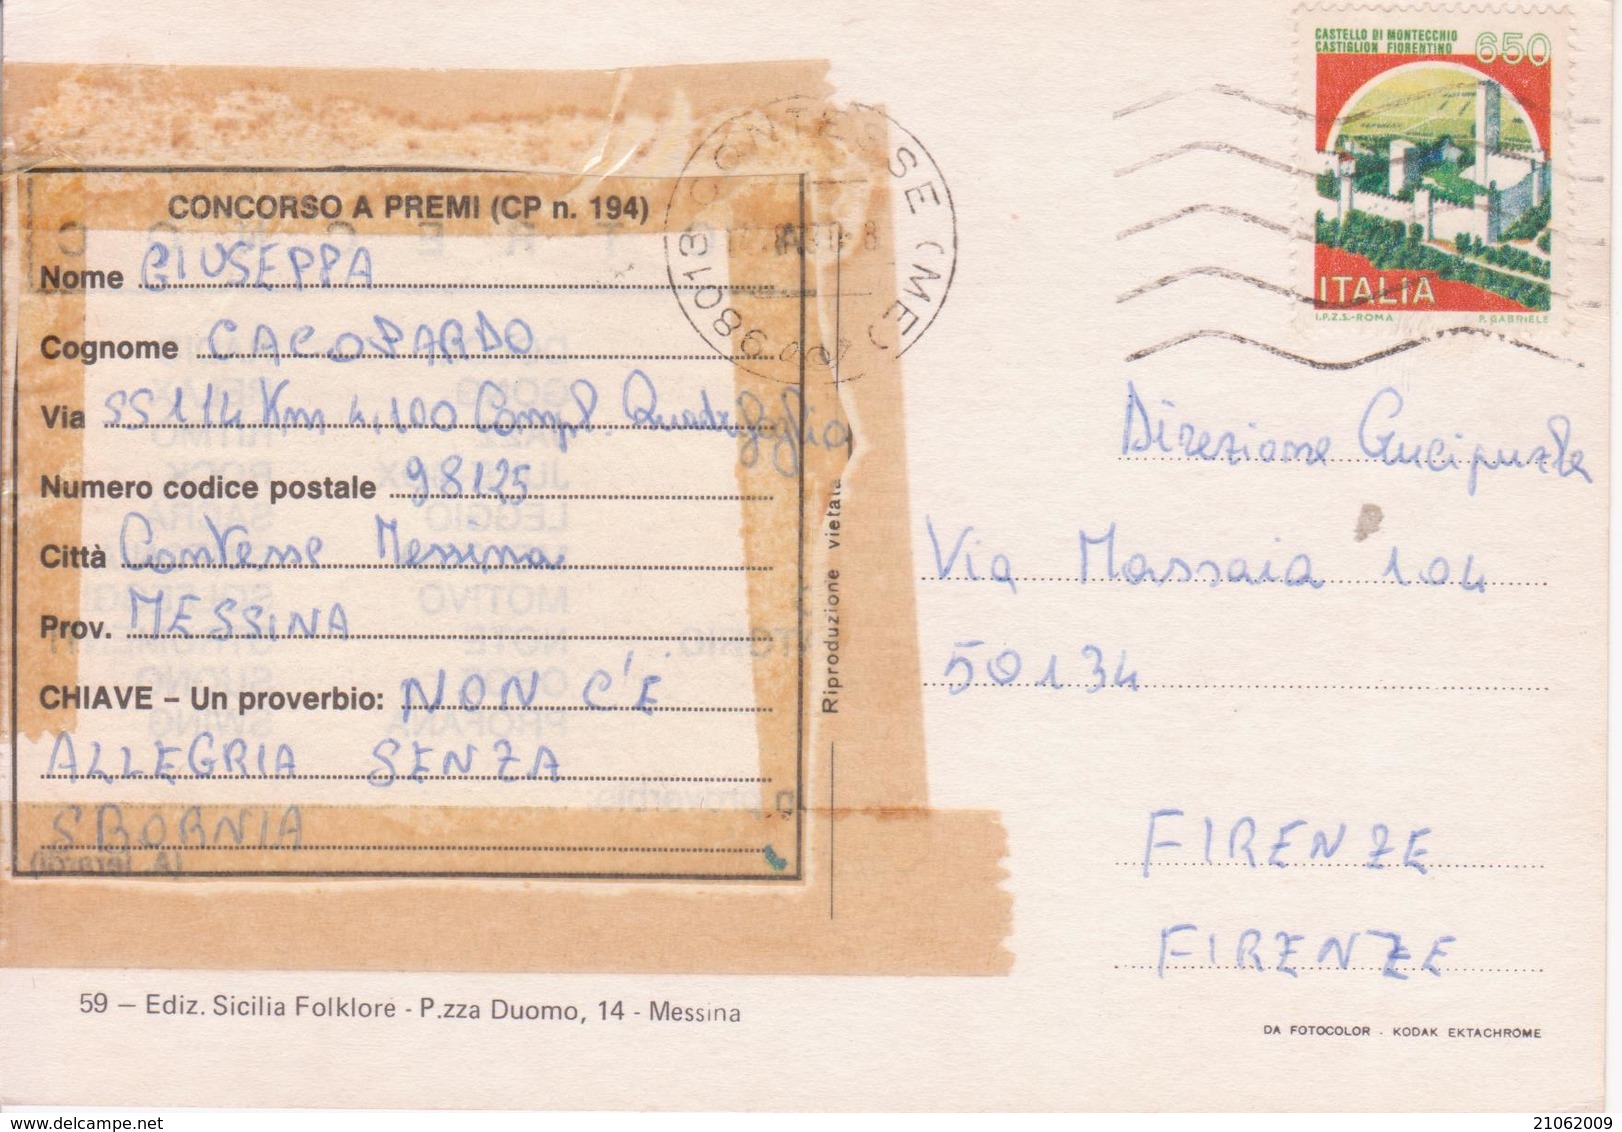 CASTELLO DI MONTECCHIO
CASTIGLION FIORENTINO
650
ITALIA
I.P.Z.S.-ROMA P. GABRIELE
98013 CONTESSE (ME)
CONCORSO A PREMI (CP n. 194)
Nome GIUSEPPA
Cognome CACOPARDO
Via SS 114 Km 4,100 Compl. Quadrifoglio
Numero codice postale 98125
Città Contesse Messina
Prov. MESSINA
CHIAVE – Un proverbio: NON C'È
ALLEGRIA SENZA
SBORNIA
Riproduzione vietata
Direzione Crucipuzle
Via Massaia 104
50134
FIRENZE
FIRENZE
59 – Ediz. Sicilia Folklore - P.zza Duomo, 14 - Messina
DA FOTOCOLOR - KODAK EKTACHROME
21062009